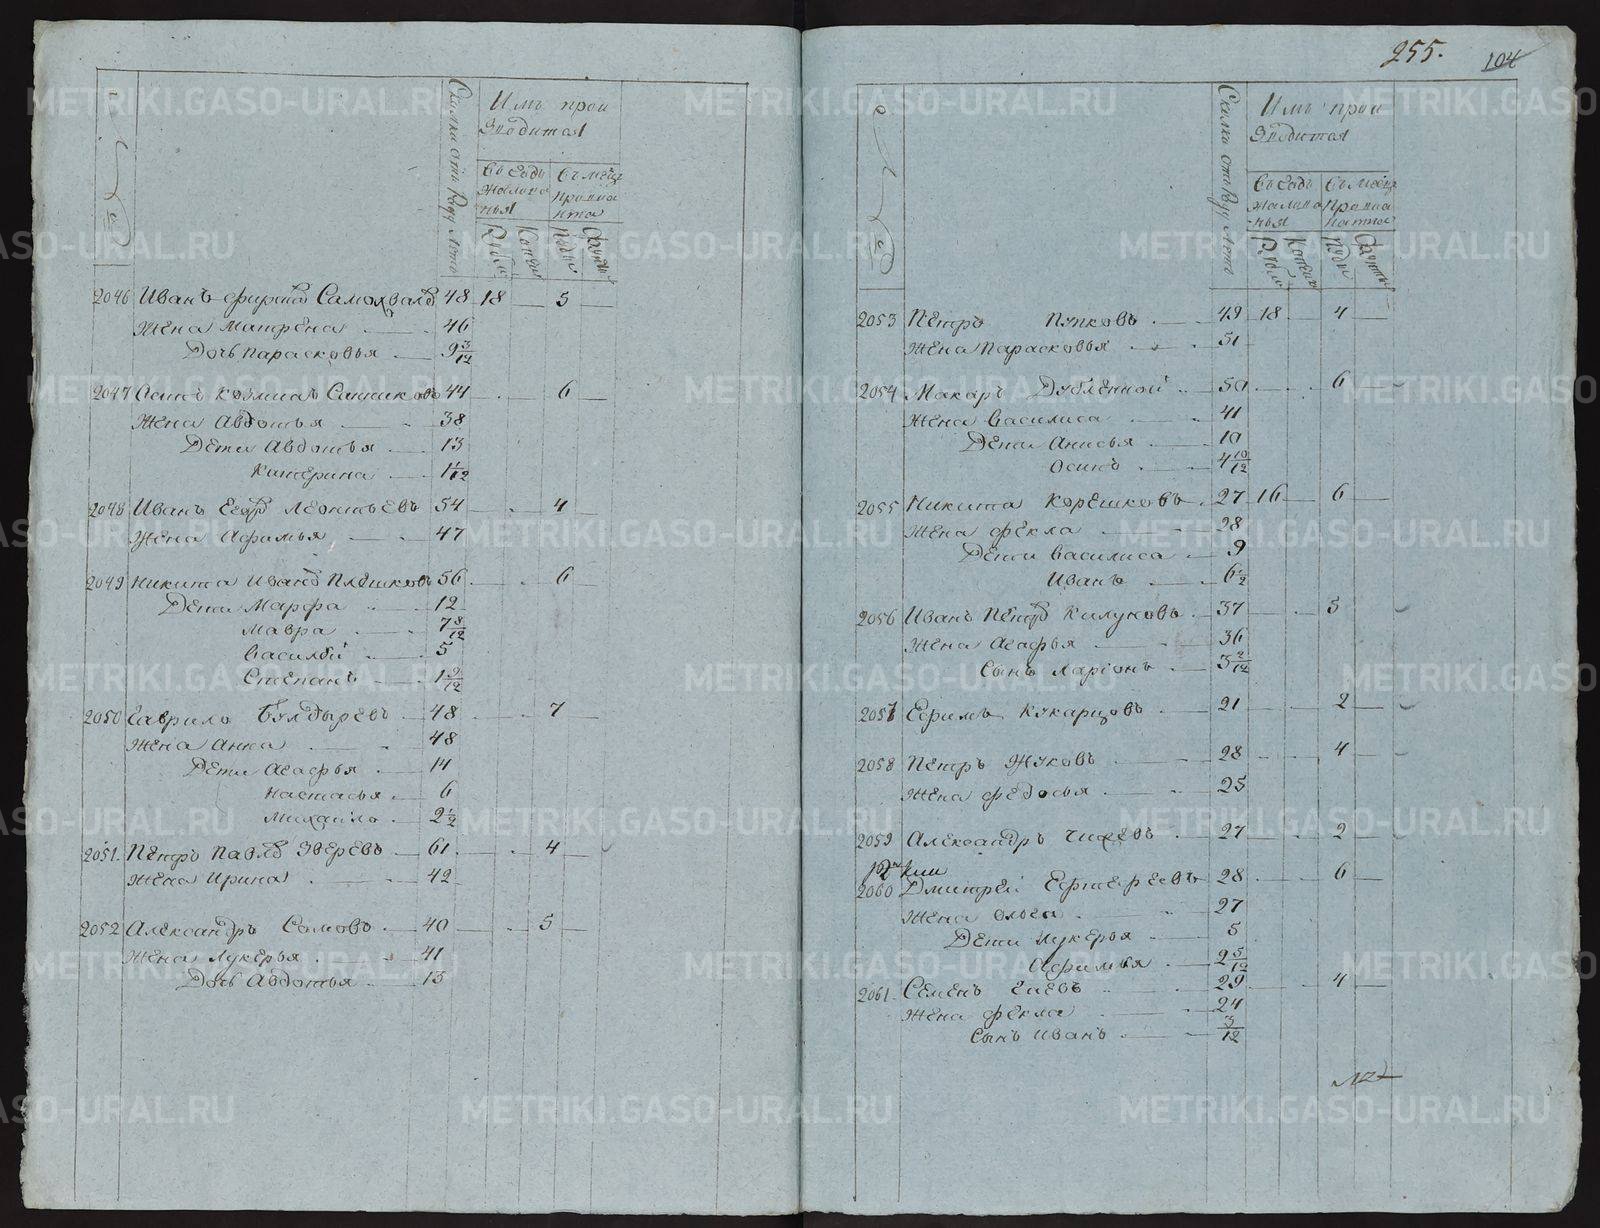 255.
104
№
Сколки отъ Роду Лѣтъ
Имъ прои
зводится
Въ Годъ
жалова
нья
Въ мѣсяц
провиа
нта
Рубли
Копѣи
Пуды
Фунты
2046 Иванъ Самохвалов 48 18 — 5 —
Жена Матрена — 46
Дочь Парасковья — 9 3/12
2047 Осипъ Козминъ 44 — . — 6 —
Жена Авдотья — 38
Дети Авдотья — 13
Катерина — 1 1/12
2048 Иванъ Леонтьевъ 54 — . — 4 —
Жена Афимья — 47
2049 Никита Иванов Плешков 56 — . — 6 —
Дети Марфа — 12
Мавра — 7 8/12
Василѣй — 5
Степанъ — 1 9/12
2050 Гаврило Булдыревъ — 48 — . — 7 —
Жена Анна — 48
Дети Агафья — 11
Настасья — 6
Михайло — 2 1/2
2051. Петръ Павлов Зверевъ — 61 — . — 4 —
Жена Ирина — 42
2052 Александръ Сомовъ — 40 — . — 5 —
Жена Лукерья — 41
Дочь Авдотья — 13
№
Сколки отъ Роду Лѣтъ
Имъ прои
зводится
Въ Годъ
жалова
нья
Въ мѣсяц
провиа
нта
Рубли
Копѣи
Пуды
Фунты
2053 Петръ Пупковъ — 49 — 18 — 4 —
Жена Парасковья — 51
2054 Макаръ Дубленной — 50 — . — 6 —
Жена Василиса — 41
Дети Анисья — 10
Осипъ — 4 10/12
2055 Никита Корешковъ — 27 16 — 6 —
Жена Фекла — 28
Дети Василиса — 9
Иванъ — 6 1/2
2056 Иванъ Петров Калуковъ — 37 — . — 5 —
Жена Агафья — 36
Сынъ Ларіонъ — 3 2/12
2057 Ефимъ Кукарцовъ — 21 — 2 —
2058 Петръ Жуковъ — 28 — . — 4 —
Жена Федосья — 25
2059 Александръ — 27 — . — 2 —
2060 Дмитрей — 28 — . — 6 —
Жена Олга — 27
Дети Лукерья — 5
Афимья — 2 5/12
2061. Семенъ — 29 — . — 4 —
Жена Фекла — 24
Сынъ Иванъ — 3/12
METRIKI.GASO-URAL.RU